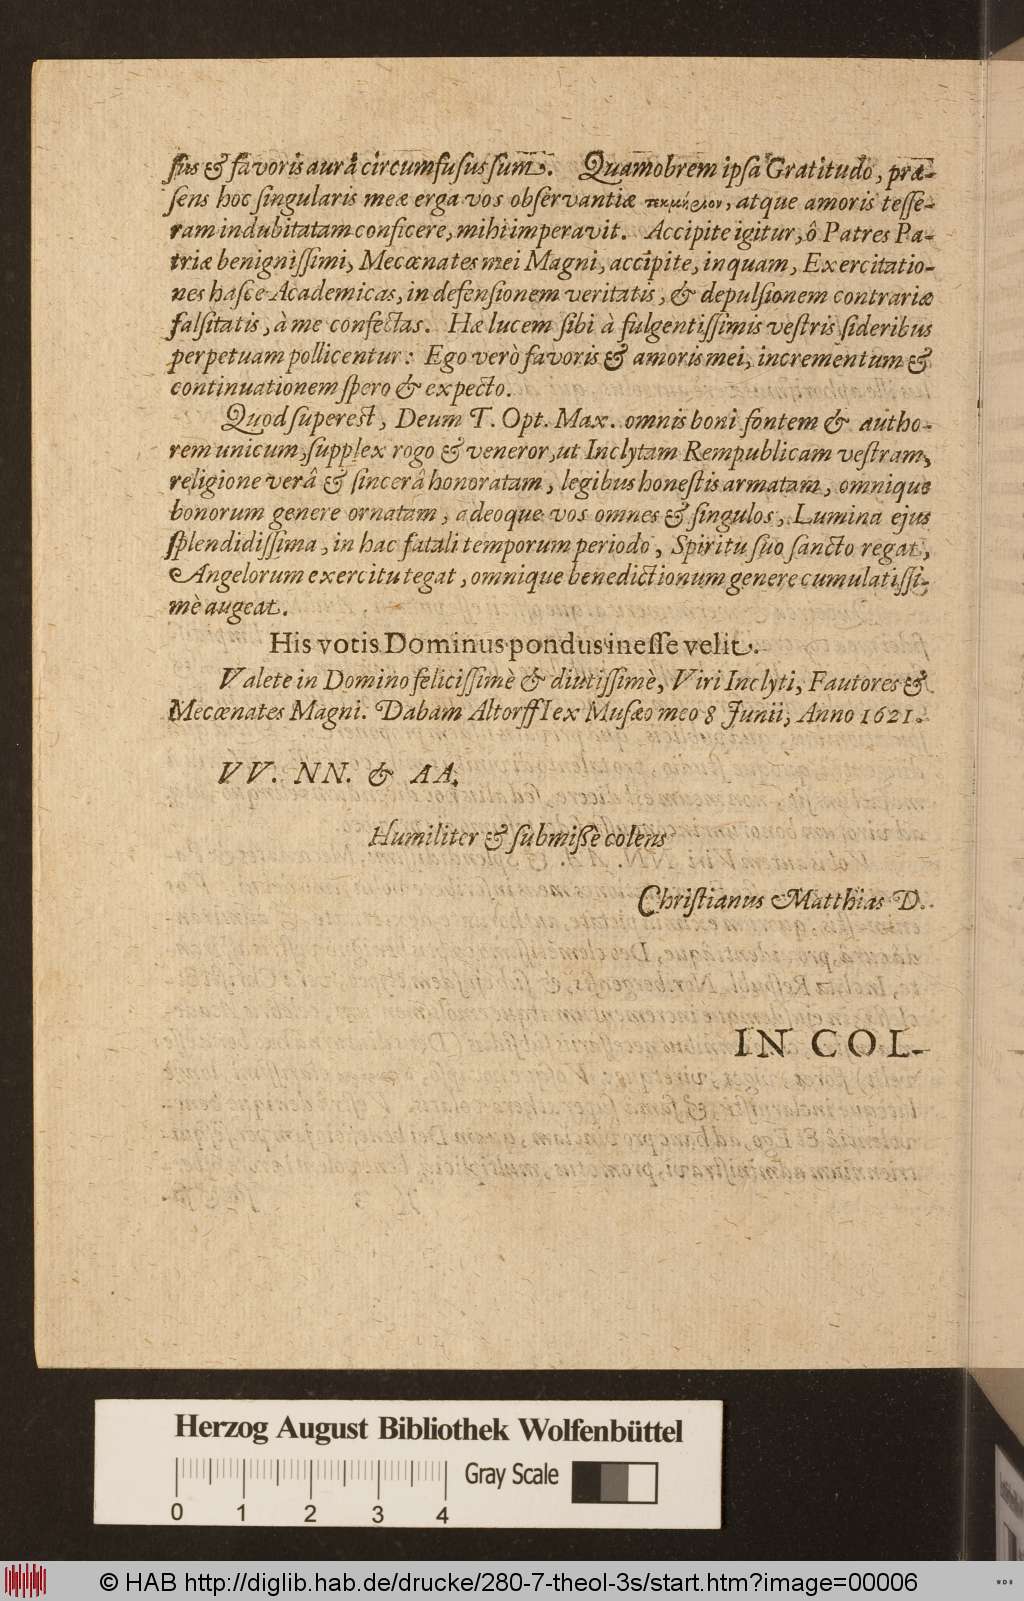 ſus & favoris aurâ circumfusus sum. Quamobrem ipsa Gratitudo, præ-
ſens hoc ſingularis meæ erga vos obſervantiæ τεκμήριον, atque amoris teſſe-
ram indubitatam conficere, mihi imperavit. Accipite igitur, ô Patres Pa-
triæ benigniſſimi, Mecœnates mei Magni, accipite, inquam, Exercitatio-
nes haſce Academicas, in defenſionem veritatis, & depulſionem contrariæ
falſitatis, à me confectas. Hæ lucem ſibi à fulgentiſſimis veſtris ſideribus
perpetuam pollicentur: Ego verò favoris & amoris mei, incrementum &
continuationem ſpero & expecto.
Quod ſupereſt, Deum T. Opt. Max. omnis boni fontem & autho-
rem unicum, ſupplex rogo & veneror, ut Inclytam Rempublicam veſtram,
religione verâ & ſincerâ honoratam, legibus honeſtis armatam, omnique
bonorum genere ornatam, adeoque vos omnes & ſingulos, Lumina ejus
ſplendidiſſima, in hac fatali temporum periodo, Spiritu ſuo ſancto regat,
Angelorum exercitu tegat, omnique benedictionum genere cumulatiſſi-
mè augeat.
His votis Dominus pondus ineſſe velit.
Valete in Domino feliciſſimè & diutiſſimè, Viri Inclyti, Fautores &
Mecœnates Magni. Dabam Altorffl ex Muſæo meo 8 Junii, Anno 1621.
VV. NN. & AA.
Humiliter & ſubmißè colens
Chriſtianus Matthias D.
IN COL-
Herzog August Bibliothek Wolfenbüttel
Gray Scale
0 1 2 3 4
© HAB http://diglib.hab.de/drucke/280-7-theol-3s/start.htm?image=00006